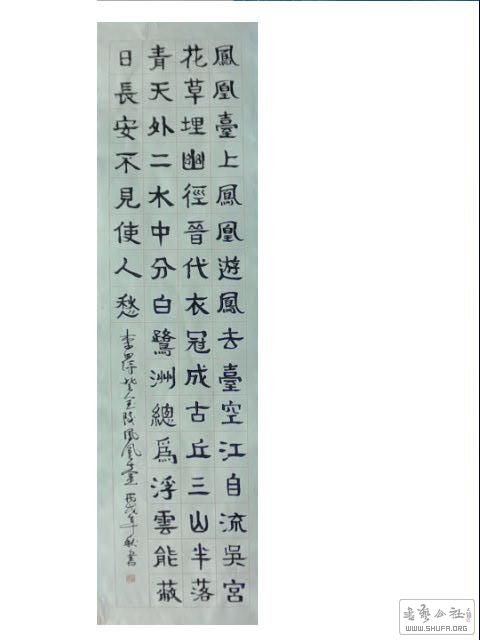 鳳凰臺上鳳凰遊鳳去臺空江自流吳宮
花草埋幽徑晉代衣冠成古丘三山半落
青天外二水中分白鷺洲總爲浮雲能蔽
日長安不見使人愁
李白詩登金陵鳳凰臺 丙戌年秋書
書藝公社
WWW.SHUFA.ORG